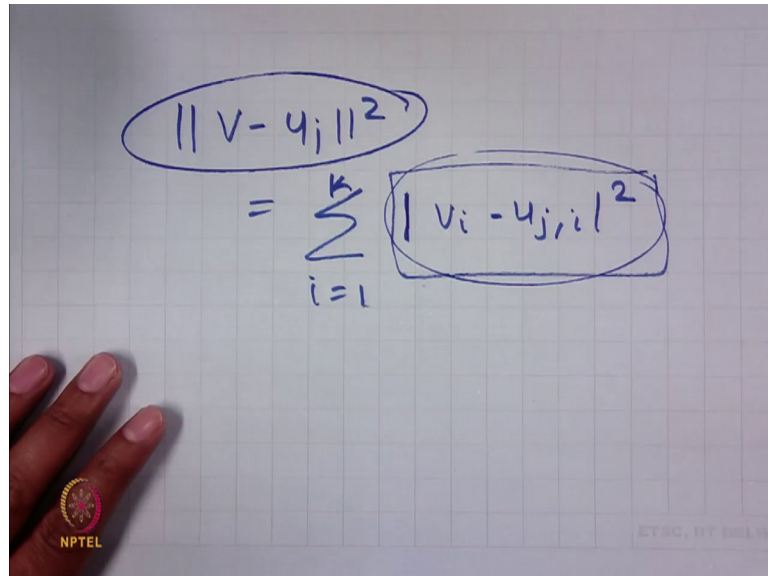 || V - u_j ||²
= Σ_{i=1}^{K} | v_i - u_{j,i} |²
NPTEL
ETSC, IIT DELHI